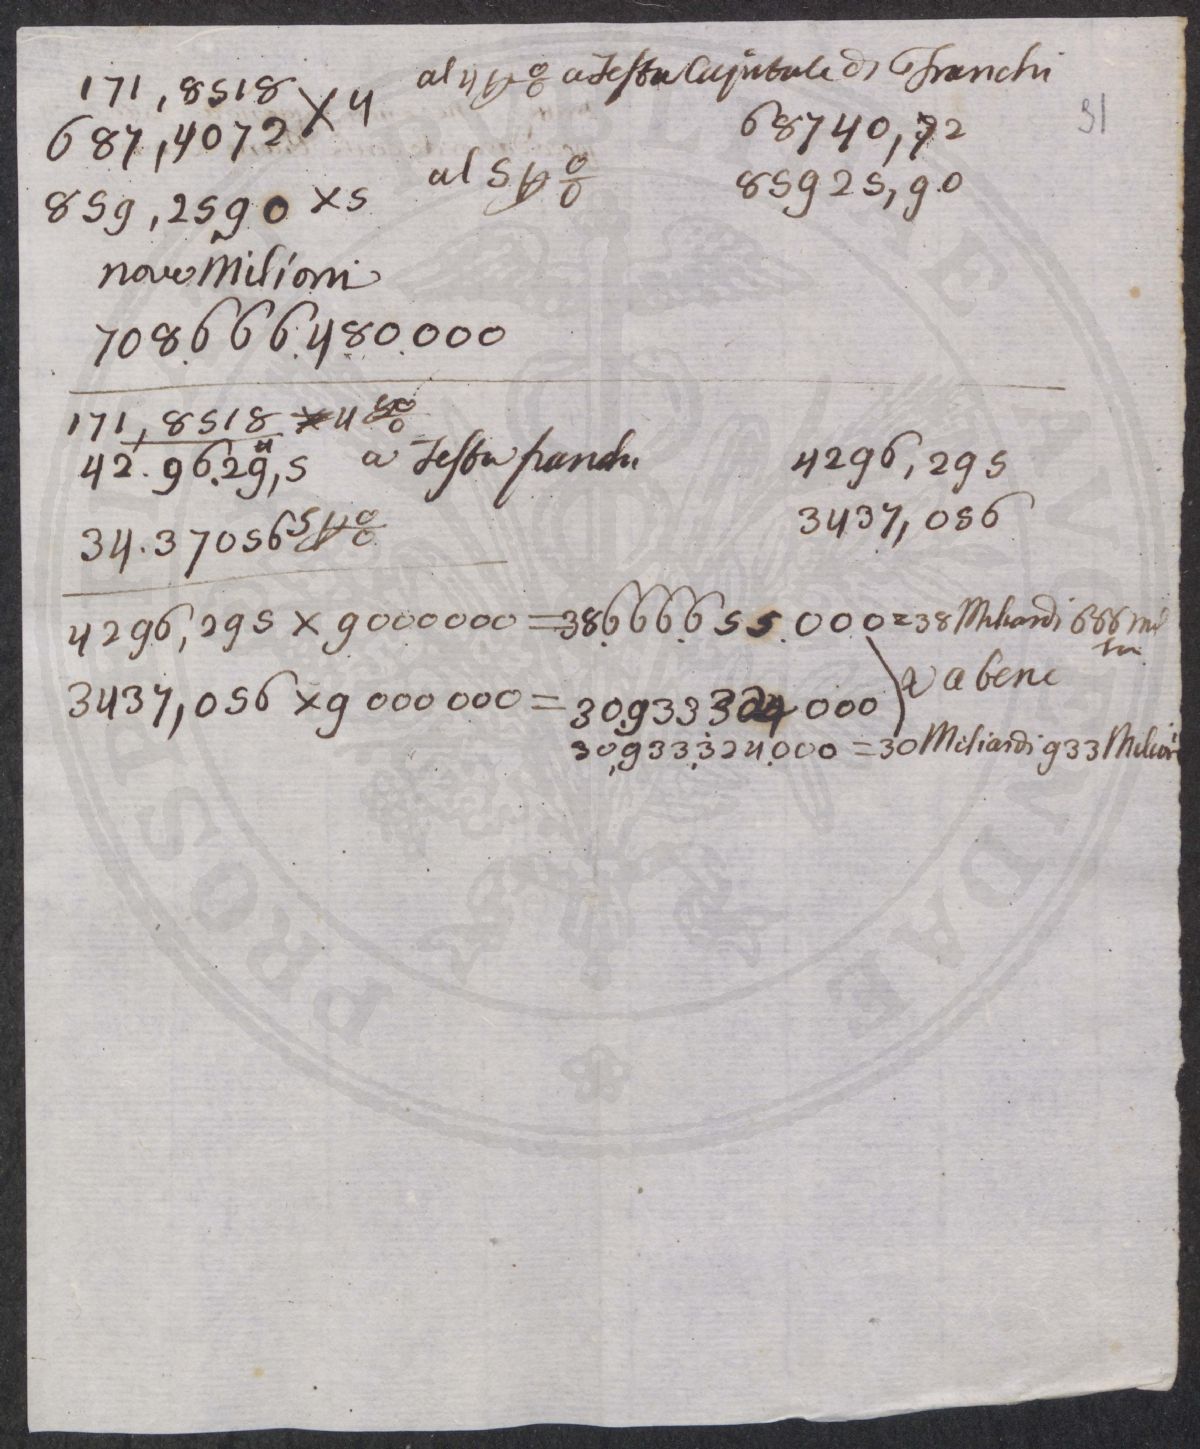 171,8518 × 4 al 4 p % a Testa Capitale di Franchi
31
687,4072 68740,72
859,2590 × 5 al 5 p % 85925,90
nove Milioni
708.666.480.000
171,8518 × 4 %
4
42.96.29,5 a Testa franchi 4296,295
34.37056 5 p % 3437,056
4296,295 × 9000000 = 38.666.655.000 = 38 Miliardi 666 mil
va bene
3437,056 × 9000000 = 30.933.324.000
30,933.324.000 = 30 Miliardi 933 Milioni
PROSPERITATI PUBLICAE AUGENDAE